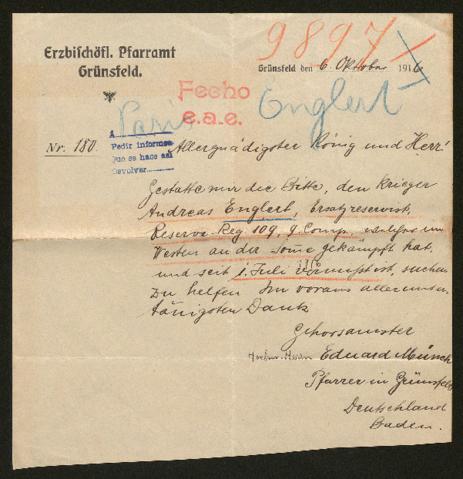 Erzbischöfl. Pfarramt
Grünsfeld.
9897
Grünsfeld den 6. Oktober 1916
Fecho
e.a.e.
Englert
Paris
Nr. 180
A
Pedir informes
Que se haga asi
Devolver
Allergnädigster König und Herr!
Gestatte mir die Bitte, dem Krieger
Andreas Englert, Ersatzreservist,
Reserve-Reg. 109, 9. Comp., welcher im
Westen an der Somme gekämpft hat,
und seit 1. Juli 1916 vermisst ist, suchen
zu helfen. Im voraus alleruntertänigsten Dank
Gehorsamster
Eduard Münch
Pfarrer in Grünsfeld
Deutschland
Baden.